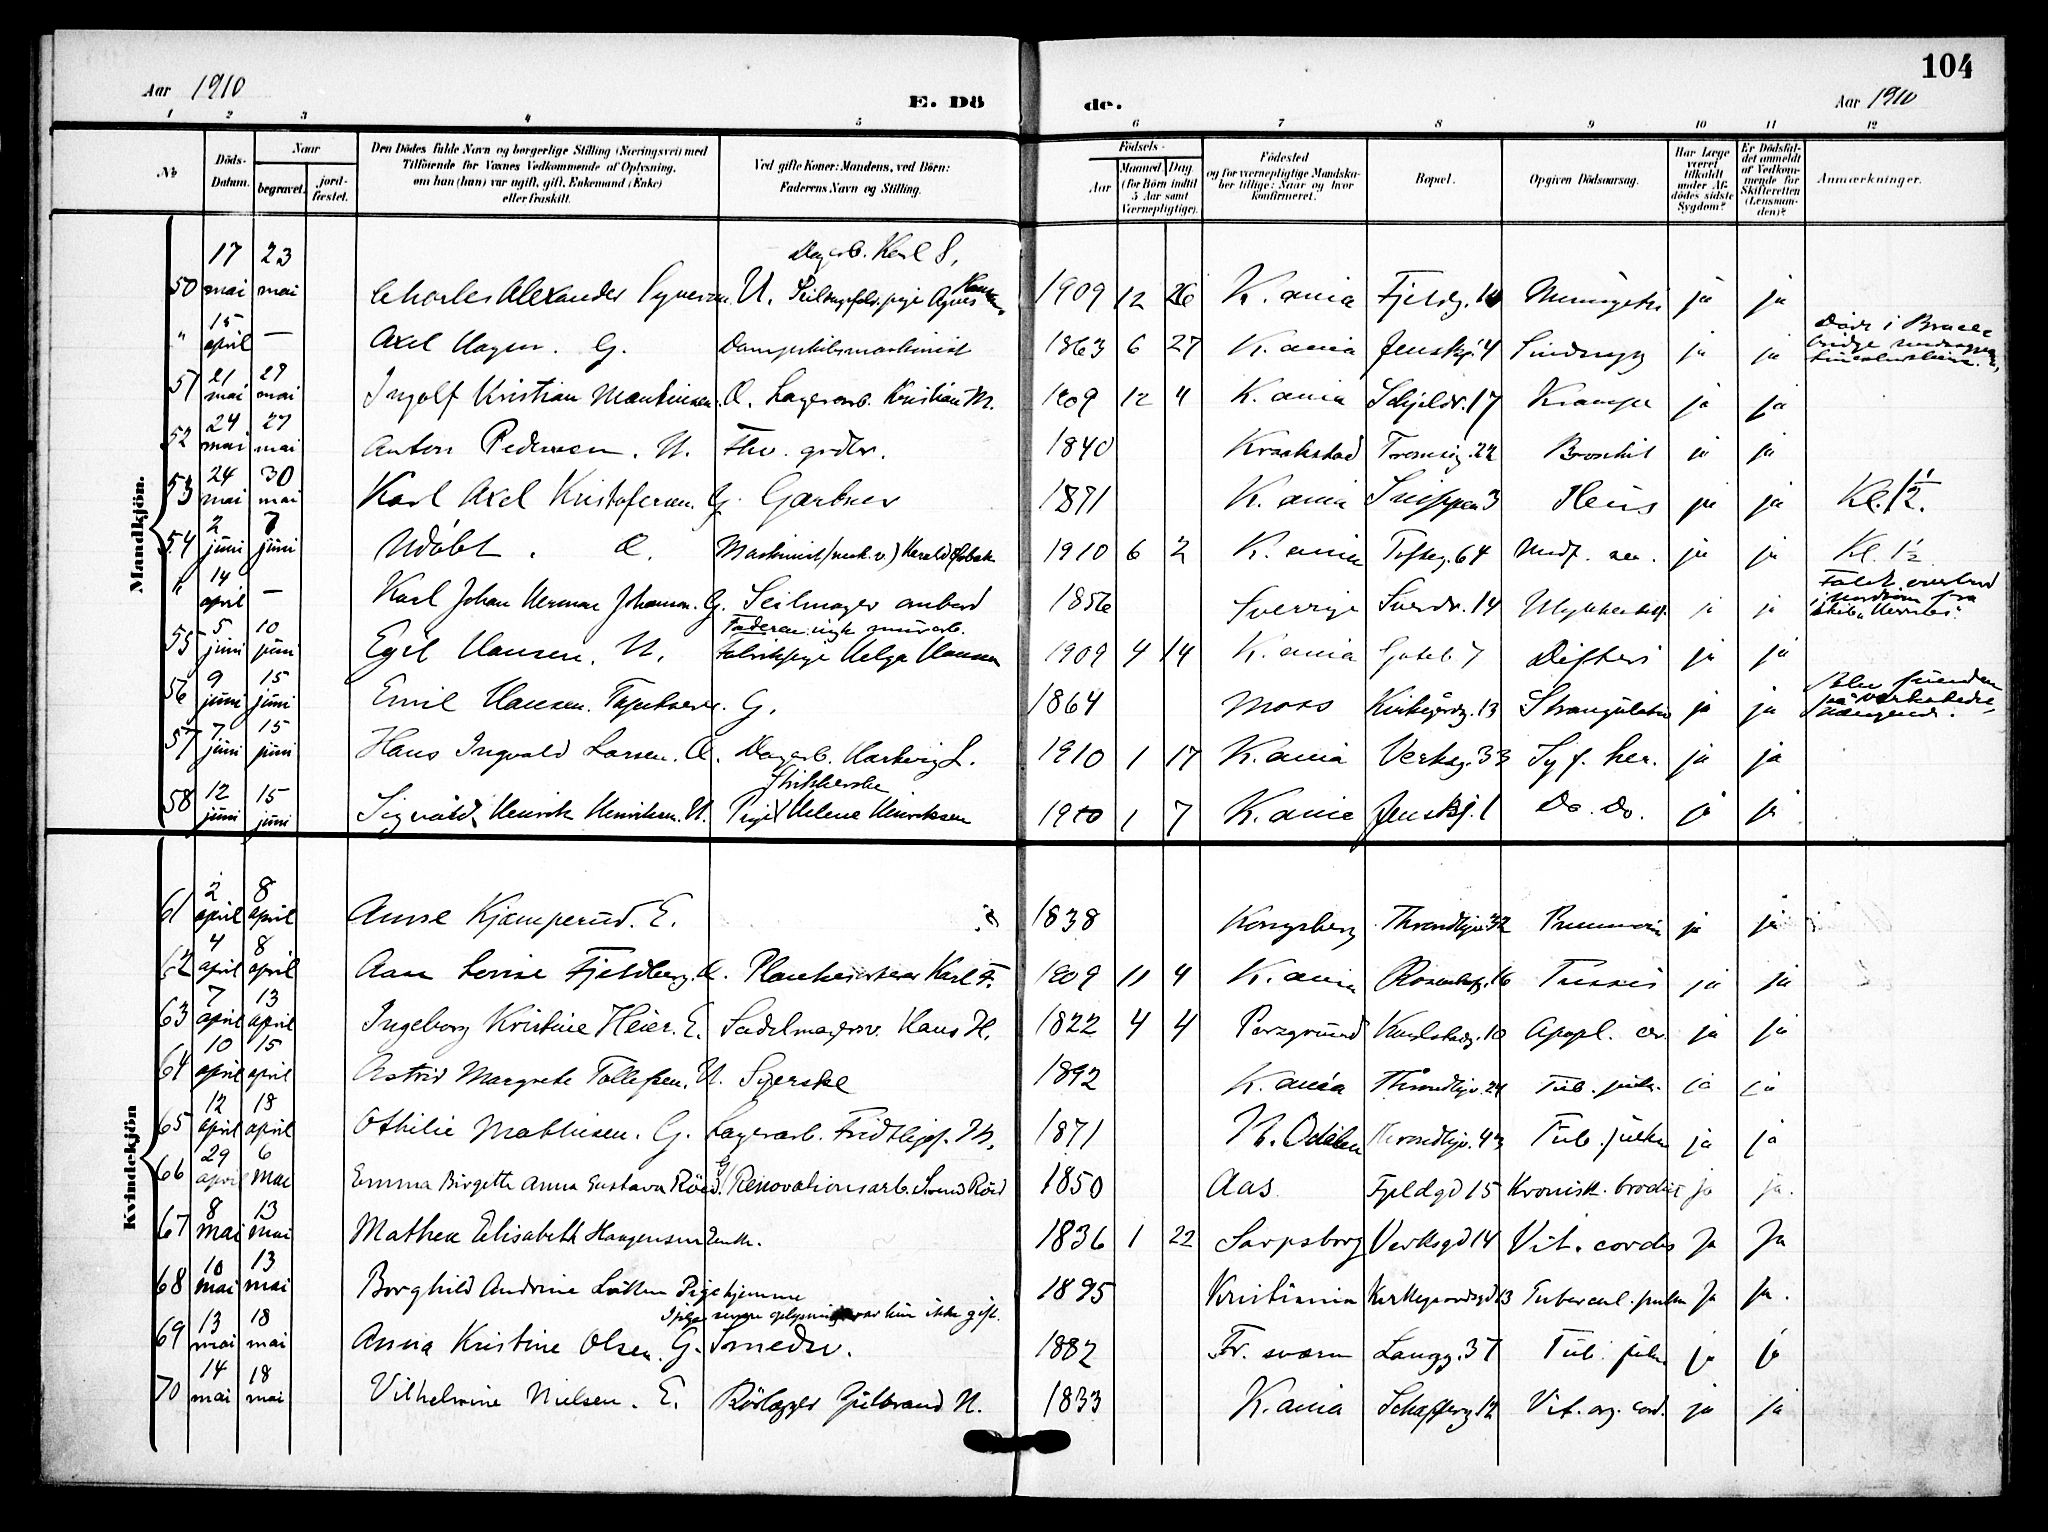 104
Aar 1910
E. Dö
de.
Aar 1910
1 2 3 4 5 6 7 8 9 10 11 12
No
Döds-Datum.
Naar
begravet.
jord-fæstet.
Den Dödes fulde Navn og borgerlige Stilling (Næringsvei) med Tilföiende for Voxnes Vedkommende af Oplysning, om han (hun) var ugift, gift, Enkemand (Enke) eller fraskilt.
Ved gifte Koner: Mandens, ved Börn: Faderens Navn og Stilling.
Födsels-
Aar
Maaned Dag
(for Börn indtil 5 Aar samt Værnepligtige).
Födested
og for værnepligtige Mandska-ber tillige: Naar og hvor konfirmeret.
Bopæl.
Opgiven Dödsaarsag.
Har Læge været tilkaldt under Af-dödes sidste Sygdom?
Er Dödsfal-det anmeldt af Vedkom-mende for Skifteretten (Lensman-den)?
Anmærkninger.
Mandkjön.
Dagarb. Karl S.
50 17 mai 23 mai Charles Alexander U. Agnes 1909 12 26 K.ania Fjeldg. 14 ja ja
" 15 april — Axel Hagen. G. Dampskibsmaskinist 1863 6 27 K.ania Jenskj. 4 ja ja Döde i
51 21 mai 29 mai Ingolf Kristian Martinsen. Æ. Lagerarb. Kristian M. 1909 12 4 K.ania Schjeldr. 17 Krampe ja ja
52 24 mai 27 mai Anton Pedersen. U. Fhv. 1840 Kraakstad Tromsög. 22 Bronkit ja ja
53 24 mai 30 mai Karl Axel Kristofersen. G. Gartner 1871 K.ania Snippen 3 Ileus ja ja Kl. 1½.
54 2 juni 7 juni Udöbt. Æ. Maskinist (mek. v.) Harald 1910 6 2 K.ania Tofteg. 64 Medf. ja ja Kl. 1½
" 14 april — Karl Johan Herman Johansen. G. Seilmager ombord 1856 Sverrige Sverdr. 14 ja ja Faldt overbord i Nordsjöen fra skib
Faderen: ugk. murarb.
55 5 juni 10 juni Egil Hansen. U. Fabrikpige Helga Hansen 1909 4 14 K.ania Göteb. 7 Difteri ja ja
56 9 juni 15 juni Emil Hansen. Tapetserer. G. 1864 Moss Kirkegårdg. 13 Strangulatio ja ja Blev funden på hængende.
57 7 juni 15 juni Hans Ingvald Larsen. Æ. Dagarb. Hartvig L. 1910 1 17 K.ania Verksg. 33 Syf. her. ja ja
Strikkerske
58 12 juni 15 juni Sigvald Henrik Henriksen. U. Pige Helene Henriksen 1910 1 7 K.ania Jenskj. 1 Do. Do. ja ja
Kvindekjön
61 2 april 8 april Anne Kjamperud. E. 1838 Kongsberg Throndhjv. 32 ja ja
62 4 april 8 april Aan Lovise Fjeldberg. Æ. Karl F. 1909 11 4 K.ania Rosenhofg. 16 Tussis ja ja
63 7 april 13 april Ingeborg Kristine Heier. E. Sadelmagersv. Hans H. 1822 4 4 Porsgrund Karlstadg. 10 Apopl. cer. ja ja
64 10 april 15 april Astrid Margrete Tollefsen. U. Syerske 1892 K.ania Throndhjv. 24 Tub. pulm. ja ja
65 12 april 18 april Othilie Mathiesen. G. Lagerarb. Fridthjof. M. 1871 N. Odalen Throndhjv. 43 Tub. pulm ja ja
66 29 april 6 mai Emma Birgitte Anna Gustava Röed. G/ Renovationsarb. Svend Röed 1850 Aas Fjeldgd 15 Kronisk. ja ja.
67 8 mai 13 mai Mathea Elisabeth Haagensen Enke. 1836 1 22 Sarpsborg Verksgd 14 Vit. cordis Ja Ja
68 10 mai 13 mai Borghild Andrine Pige hjemme 1895 Kristiania Kirkegaardsgd 13 Tubercul. pulm Ja Ja.
Ifölge senere oplysning var hun ikke gift.
69 13 mai 18 mai Anna Kristine Olsen. G. Smedsv. 1882 Fr. værn Langg. 37 Tub. pulm ja ja
70 14 mai 18 mai Vilhelmine Nielsen. E. Rörlægger Gulbrand N. 1833 K.ania Schafferg. 12 Vit. org. cord. ja ja